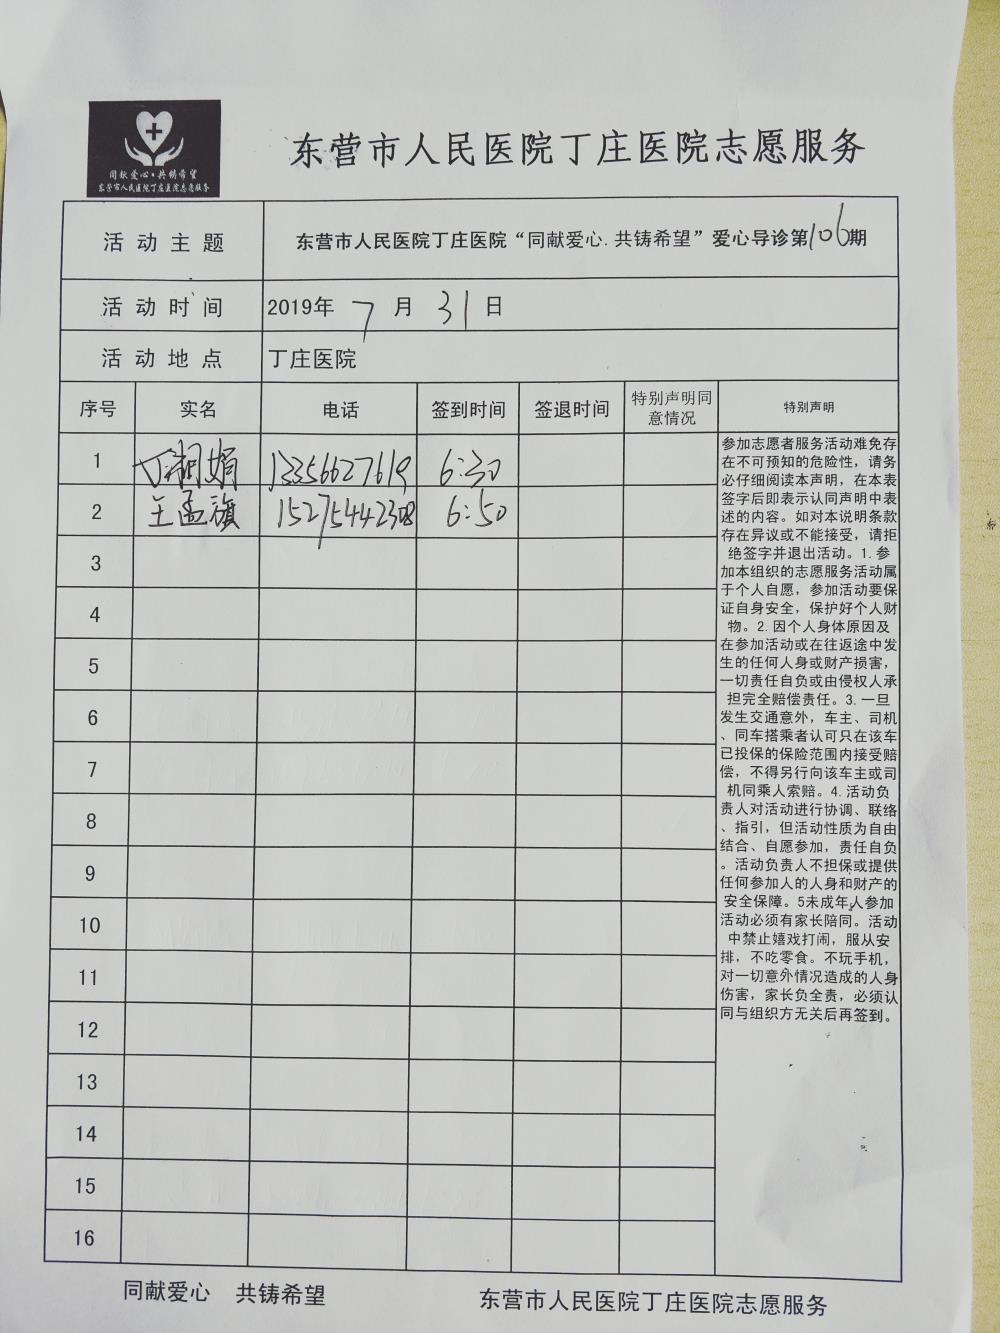 同献爱心·共铸希望
东营市人民医院丁庄医院志愿服务
东营市人民医院丁庄医院志愿服务
活动主题 东营市人民医院丁庄医院“同献爱心.共铸希望”爱心导诊第106期
活动时间 2019年 7 月 31 日
活动地点 丁庄医院
序号 实名 电话 签到时间 签退时间 特别声明同意情况 特别声明
1 丁湘娟 13356627619 6:30
2 王孟旗 15275442308 6:50
3
4
5
6
7
8
9
10
11
12
13
14
15
16
参加志愿者服务活动难免存
在不可预知的危险性，请务
必仔细阅读本声明，在本表
签字后即表示认同声明中表
述的内容。如对本说明条款
存在异议或不能接受，请拒
绝签字并退出活动。1.参
加本组织的志愿服务活动属
于个人自愿，参加活动要保
证自身安全，保护好个人财
物。2.因个人身体原因及
在参加活动或在往返途中发
生的任何人身或财产损害，
一切责任自负或由侵权人承
担完全赔偿责任。3.一旦
发生交通意外，车主、司机
、同车搭乘者认可只在该车
已投保的保险范围内接受赔
偿，不得另行向该车主或司
机同乘人索赔。4.活动负
责人对活动进行协调、联络
、指引，但活动性质为自由
结合、自愿参加，责任自负
。活动负责人不担保或提供
任何参加人的人身和财产的
安全保障。5未成年人参加
活动必须有家长陪同。活动
中禁止嬉戏打闹，服从安
排，不吃零食。不玩手机，
对一切意外情况造成的人身
伤害，家长负全责，必须认
同与组织方无关后再签到。
同献爱心 共铸希望 东营市人民医院丁庄医院志愿服务